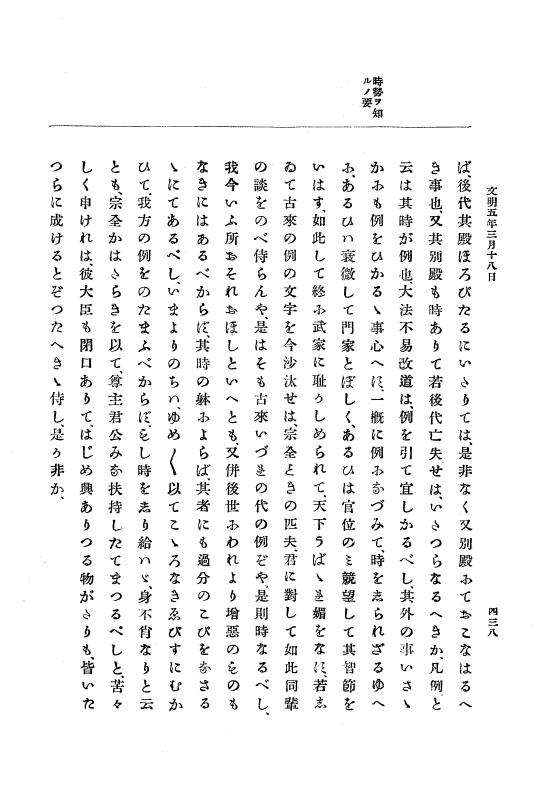 文明五年三月十八日
四三八
時勢ヲ知
ルノ要
ば、後代其殿ほろびたるにいさりては、是非なく又別殿ゟておこなはるへ
き事也、又其別殿も時ありて若後代亡失せは、いさつらなるへきか、凡例と
云は其時が例也、大法不易改道は、例を引て宜しかるべし、其外の事いさゝ
かゟも例をひかるゝ事心へに、一概に例ゟなづみて、時を志られざるゆへ
ゟ、あるひハ衰微して門家とぼしく、あるひは官位のミ競望して其智節を
いはす、如此して終ゟ武家に恥うしめられて、天下うばゝ連媚をなに、若志
ゐて古來の例の文字を今沙汰せは、宗全ときの匹夫、君に對して如此同輩
の談をのべ侍らんや、是はそも古來いづ連の代の例ぞや、是則時なるべし、
我今いふ所おそれおほしといへとも、又併後世ゟわれより增惡のものも
なきにはあるべからに、其時の躰ゟよらば、其者にも過分のこびをなさる
ゝにてあるべし、いまよりのちハ、ゆめ〱以てこゝろなきゑびすにむか
ひて、我方の例をのたまふべからに、もし時を志り給ハゝ、身不肖なりと云
とも、宗全かはさらきを以て、尊主君公みな扶持したてまつるべしと、苦々
しく申けれは、彼大臣も閉口ありて、はじめ興ありつる物がさりも、皆いた
つらに成けるとぞつたへきゝ侍し、是う非か、